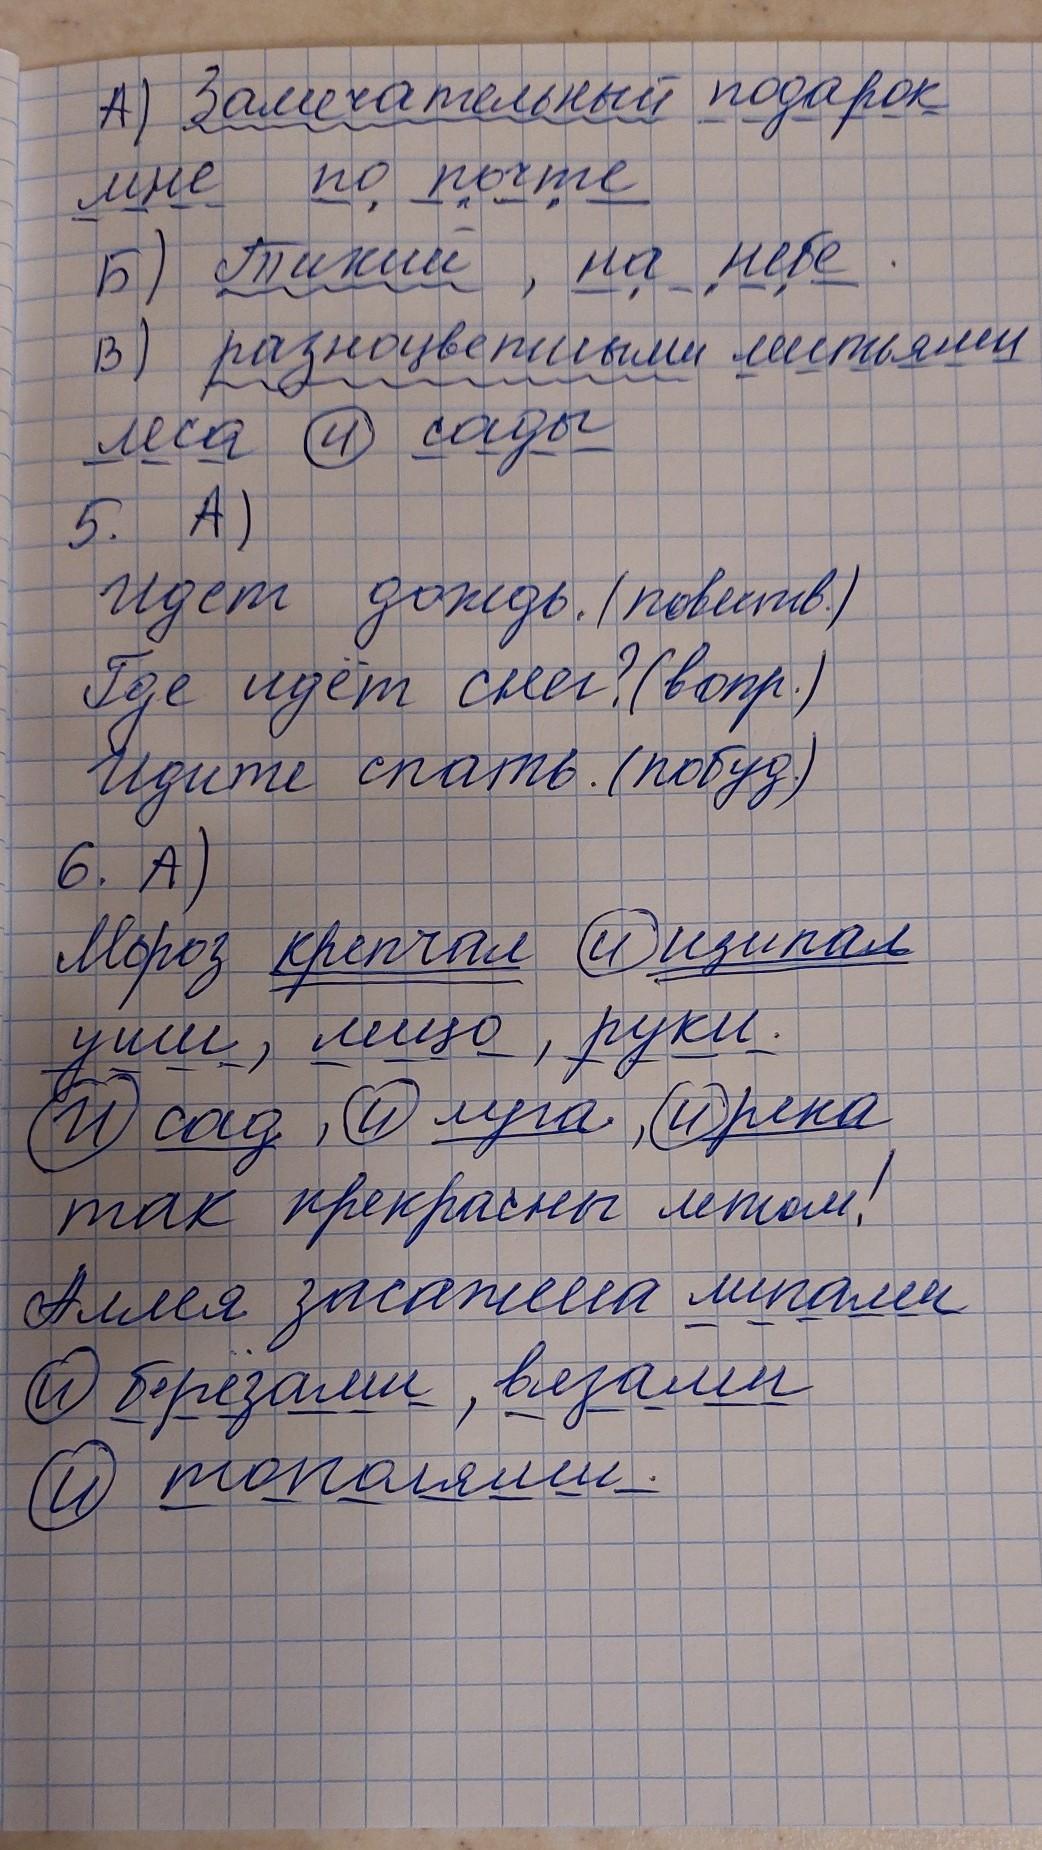 А) Замечательный подарок
мне по почте
Б) Тихий, на небе.
В) разноцветными листьями
леса и сады
5. А)
Идет дождь. (повеств.)
Где идёт снег? (вопр.)
Идите спать. (побуд.)
6. А)
Мороз крепчал и щипал
уши, лицо, руки.
И сад, и луга, и река
так прекрасны летом!
Аллея засажена липами
и берёзами, вязами
и тополями.